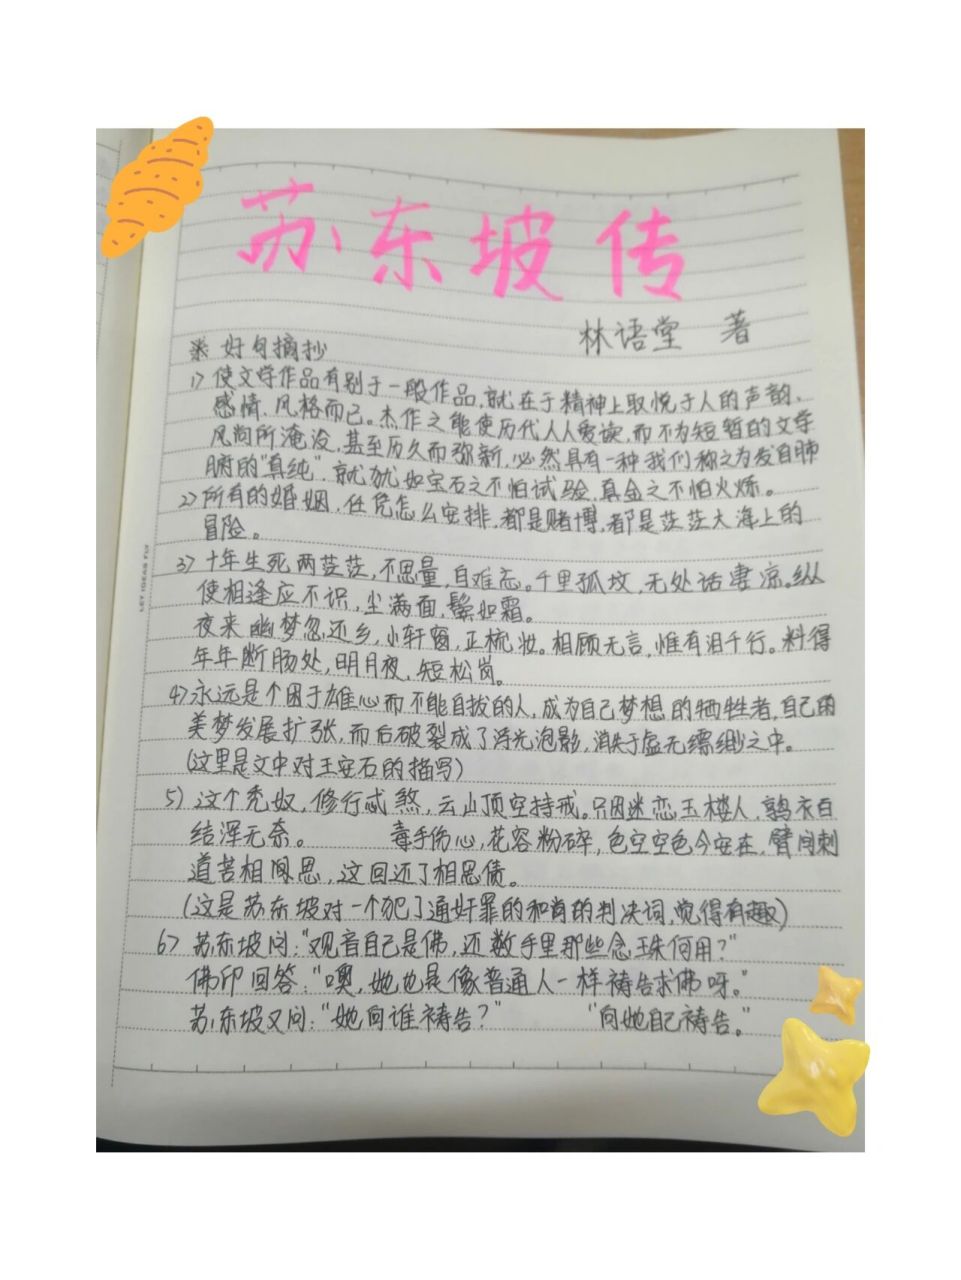 苏东坡传
林语堂 著
※ 好句摘抄
1) 使文学作品有别于一般作品,就在于精神上取悦于人的声韵、
感情、风格而已。杰作之能使历代人人爱读,而不为短暂的文学
风尚所淹没,甚至历久而弥新,必然具有一种我们称之为发自肺
腑的"真纯",就犹如宝石之不怕试验,真金之不怕火炼。
2) 所有的婚姻,任凭怎么安排,都是赌博,都是茫茫大海上的
冒险。
3) 十年生死两茫茫,不思量,自难忘。千里孤坟,无处话凄凉。纵
使相逢应不识,尘满面,鬓如霜。
夜来幽梦忽还乡,小轩窗,正梳妆。相顾无言,惟有泪千行。料得
年年断肠处,明月夜,短松岗。
4) 永远是个困于雄心而不能自拔的人,成为自己梦想的牺牲者,自己的
美梦发展扩张,而后破裂成了浮光泡影,消失于虚无缥缈之中。
(这里是文中对王安石的描写)
5) 这个秃奴,修行忒煞,云山顶空持戒。只因迷恋玉楼人,鹑衣百
结浑无奈。 毒手伤心,花容粉碎,色空空色今安在,臂间刺
道苦相思,这回还了相思债。
(这是苏东坡对一个犯了通奸罪的和尚的判决词,觉得有趣)
6) 苏东坡问:"观音自己是佛,还数手里那些念珠何用?"
佛印回答:"噢,她也是像普通人一样祷告求佛呀。"
苏东坡又问:"她向谁祷告?" "向她自己祷告。"
LEY IDEAS FLY